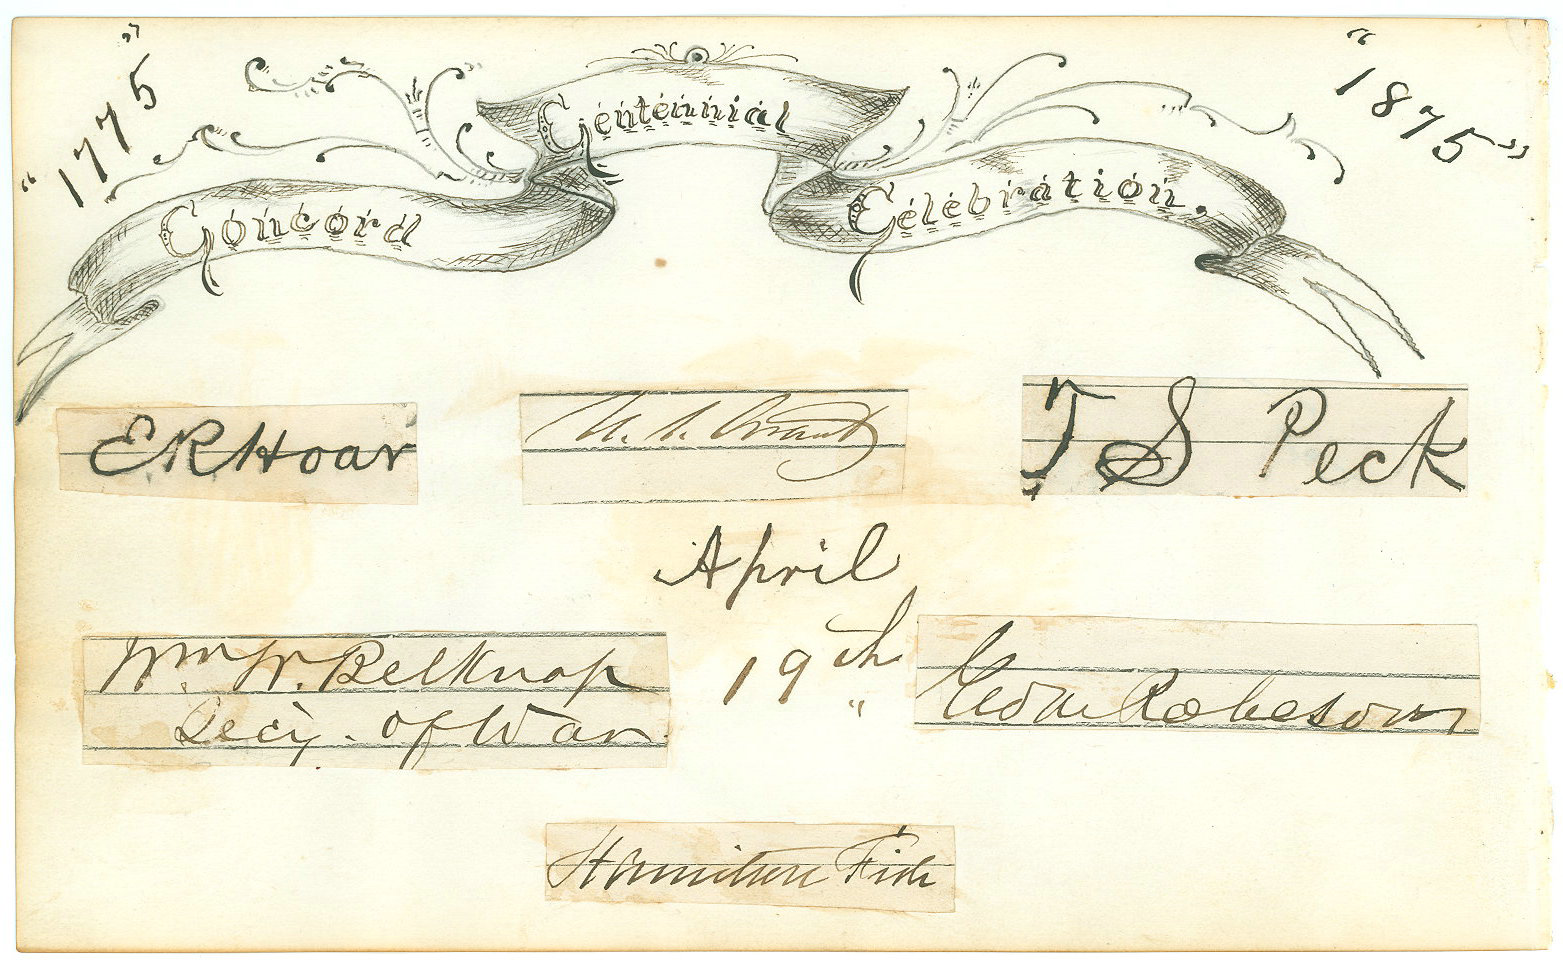 "1775"
"1875"
Concord Centennial Celebration.
E R Hoar
U. S. Grant
T S Peck
April
19th
Wm. W. Belknap
Secy. of War.
Geo M Robeson
Hamilton Fish